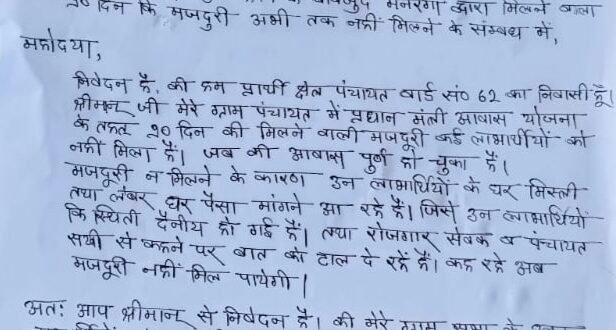 90 दिन कि मजदुरी अभी तक नहीं मिलने के सम्बंध में,
महोदया,
निवेदन है, की हम प्रार्थी क्षेत्र पंचायत वार्ड सं० 62 का निवासी हूँ।
श्रीमान् जी मेरे ग्राम पंचायत में प्रधान मंत्री आवास योजना
के तहत 90 दिन की मिलने वाली मजदूरी कई लाभार्थीयों को
नहीं मिला है। जब की आवास पुर्ण हो चुका है।
मजदूरी न मिलने के कारण उन लाभार्थियों के घर मिस्त्री
तथा लेबर घर पैसा मांगने आ रहे हैं। जिसे उन लाभार्थियों
कि स्थिती दैनीय हो गई है। तथा रोजगार सेवक व पंचायत
सखी से कहने पर बात को टाल दे रहें हैं। कह रहे अब
मजदूरी नहीं मिल पायेगी।
अतः आप श्रीमान् से निवेदन है। की मेरे ग्राम सभा के